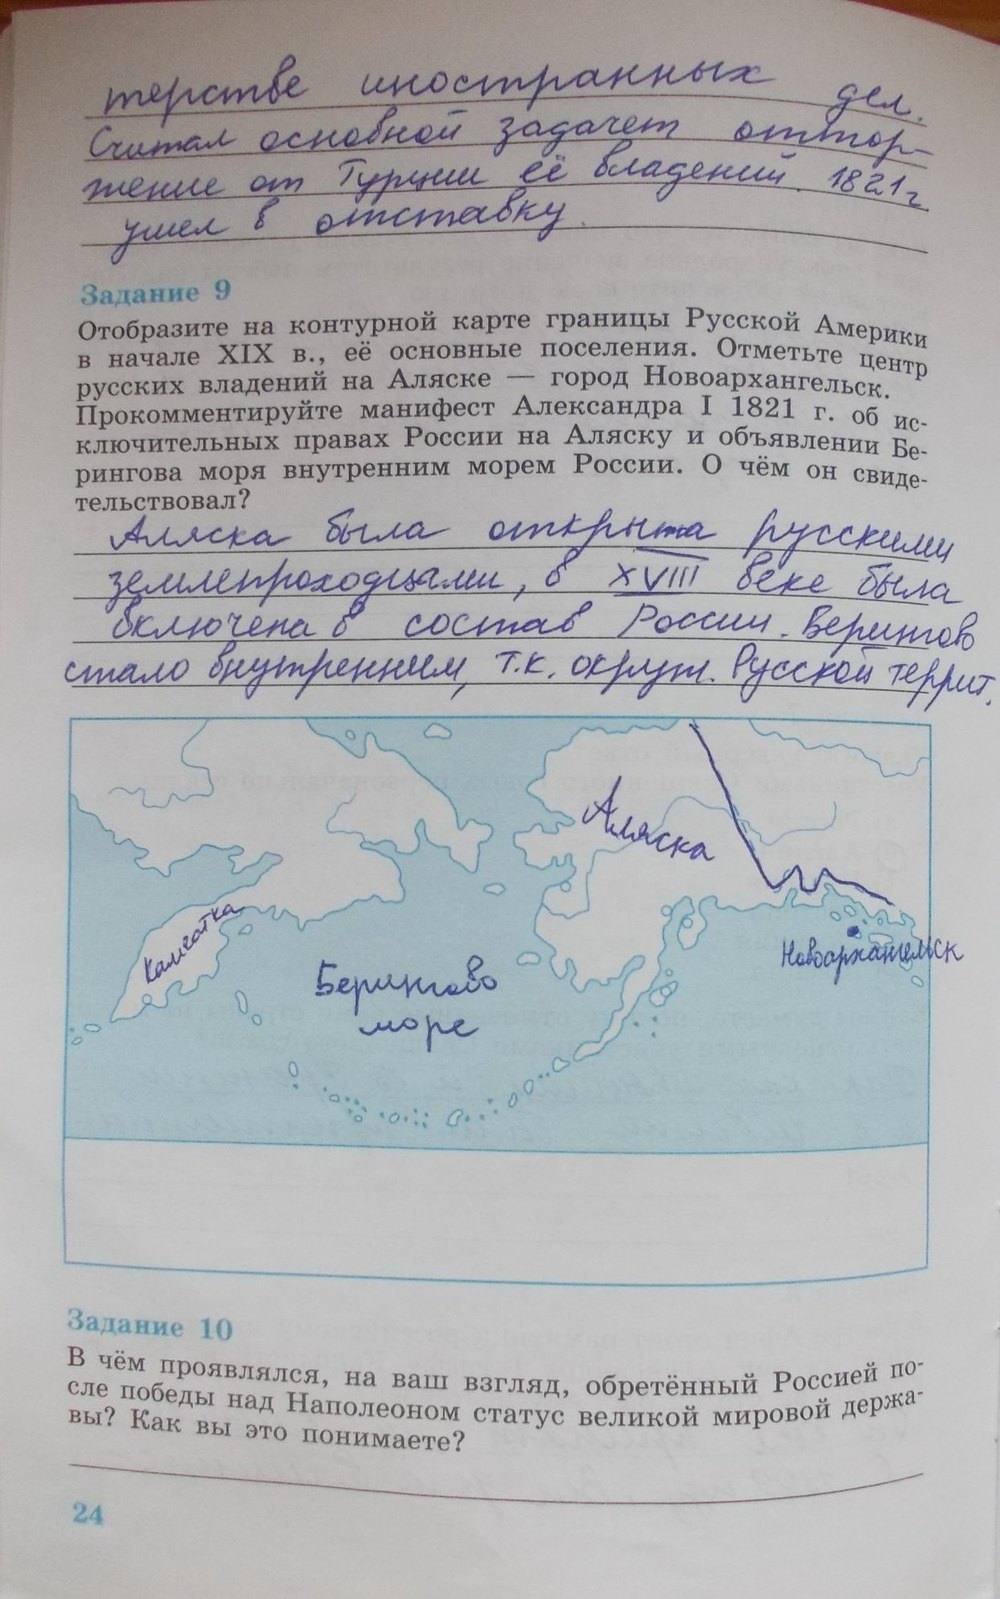 терстве иностранных дел.
Считал основной задачет оттор-
жение от Турции её владений. 1821г
ушел в отставку.
Задание 9
Отобразите на контурной карте границы Русской Америки
в начале XIX в., её основные поселения. Отметьте центр
русских владений на Аляске — город Новоархангельск.
Прокомментируйте манифест Александра I 1821 г. об ис-
ключительных правах России на Аляску и объявлении Бе-
рингова моря внутренним морем России. О чём он свиде-
тельствовал?
Аляска была открыта русскими
землепроходцами, в XVIII веке была
включена в состав России. Берингово
стало внутренним, т.к. окруж. Русской террит.
Аляска
Камчатка
Новоархангельск
Берингово
море
Задание 10
В чём проявлялся, на ваш взгляд, обретённый Россией по-
сле победы над Наполеоном статус великой мировой держа-
вы? Как вы это понимаете?
24